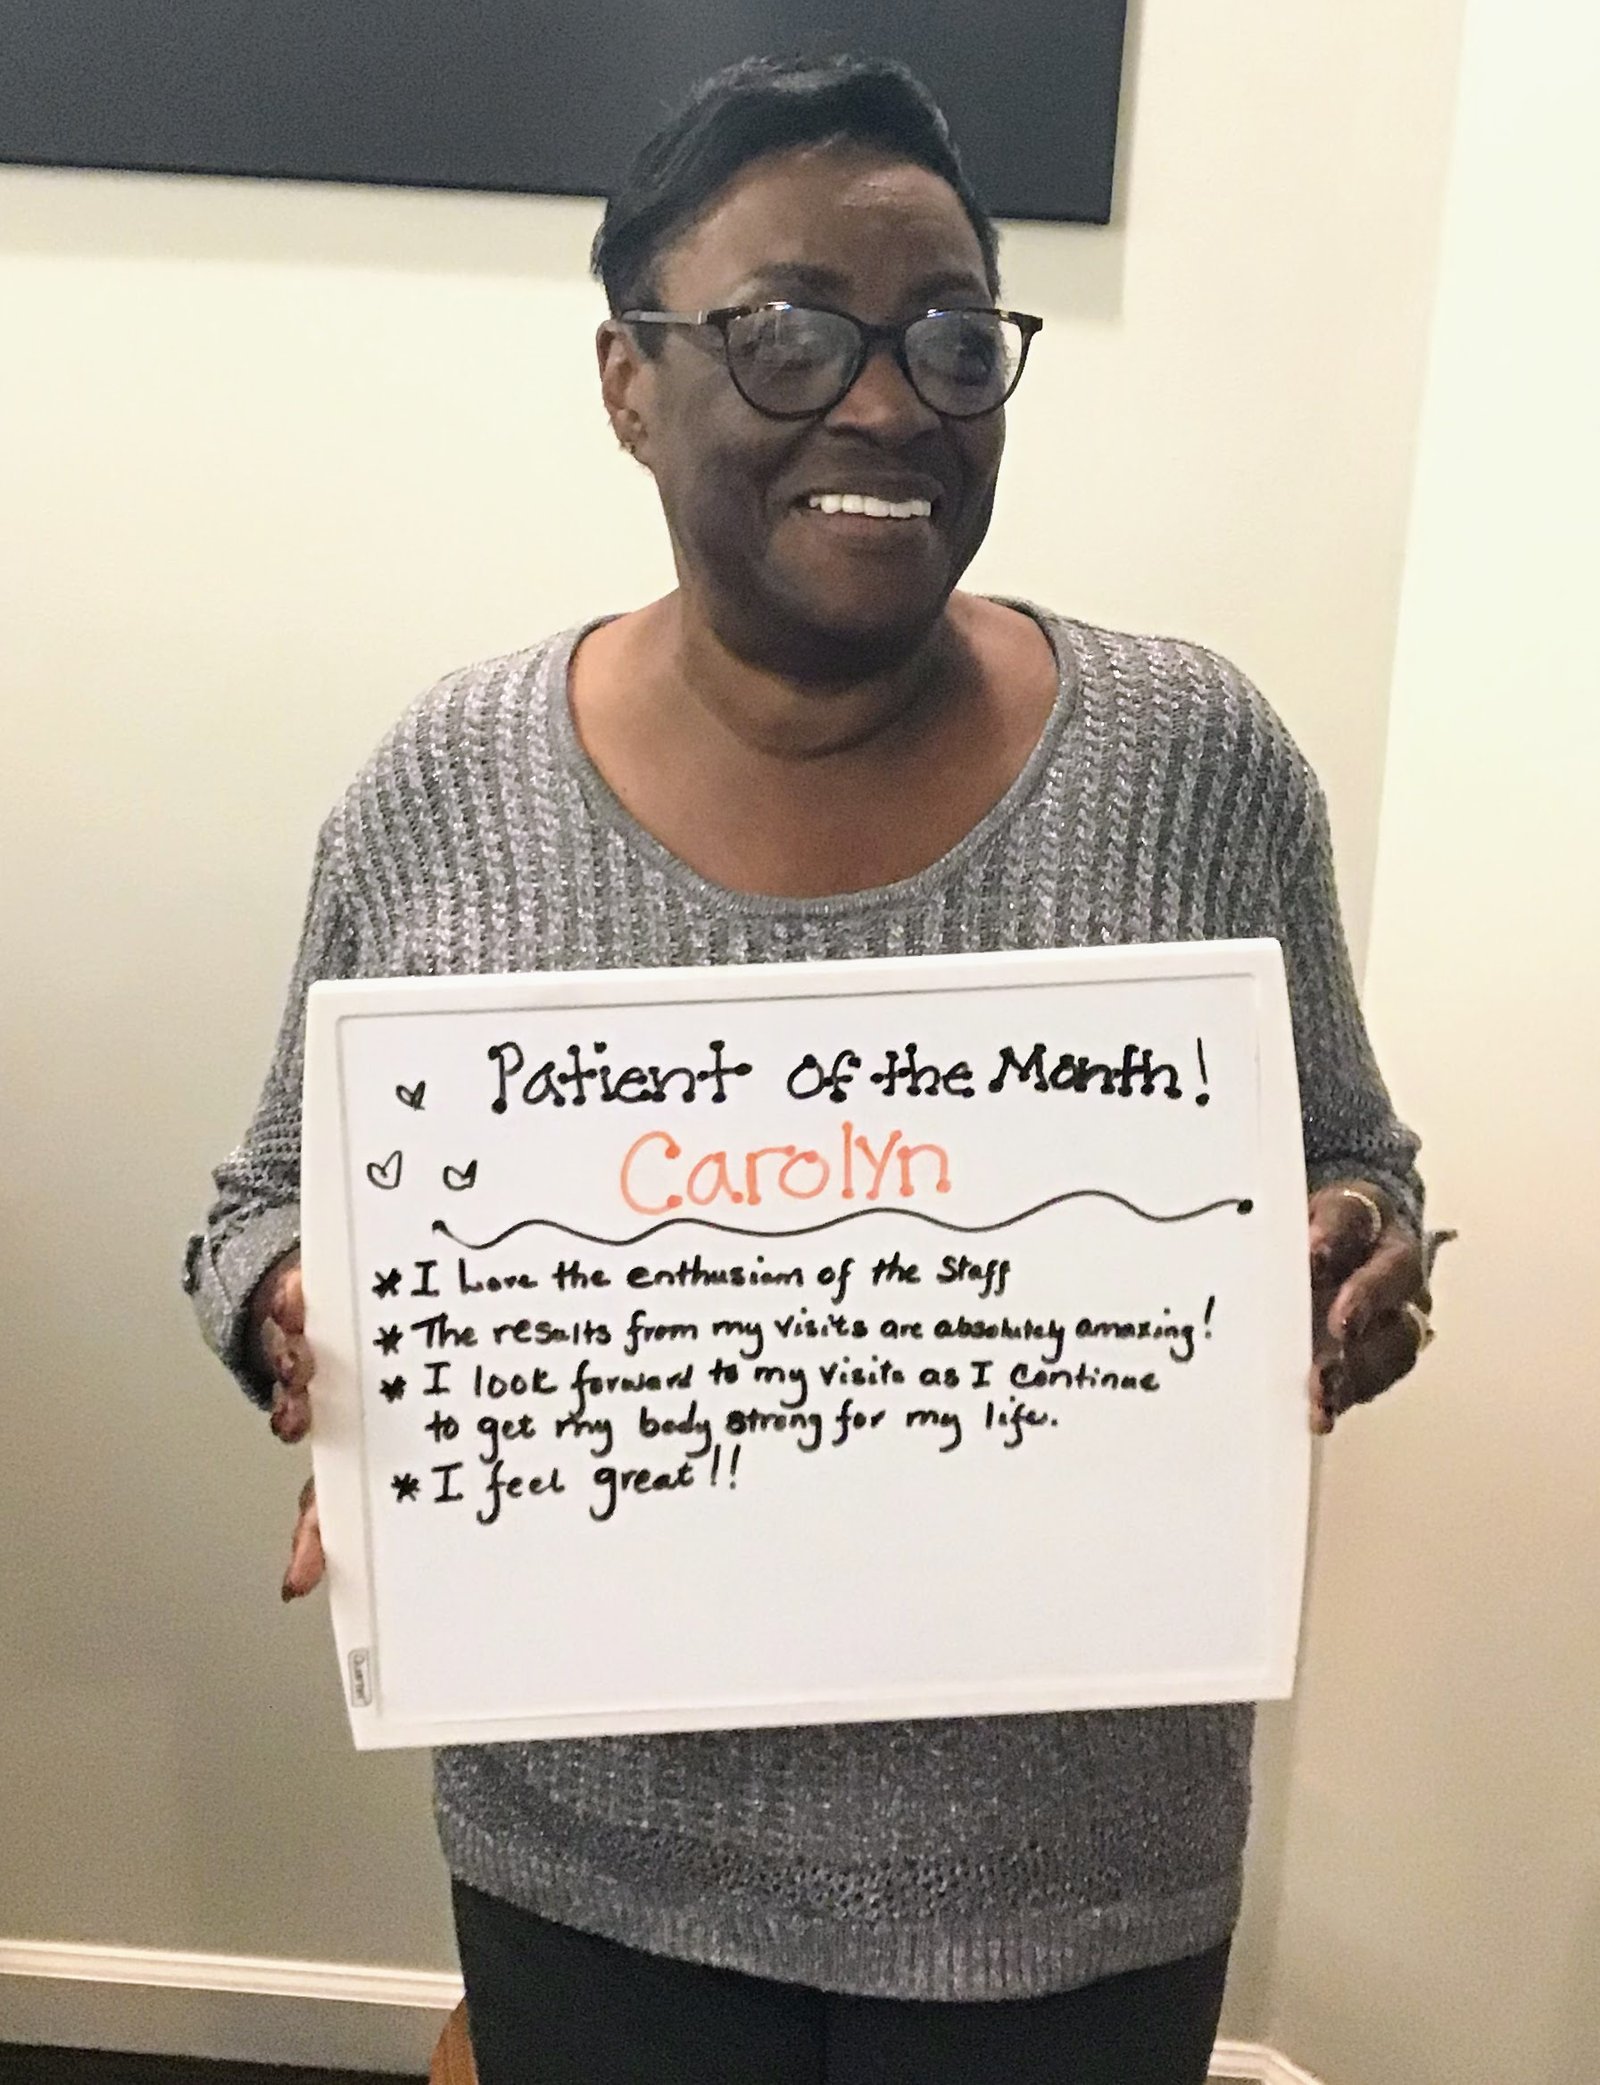 Patient of the Month!
Carolyn
* I Love the enthusiasm of the Staff
* The results from my visits are absolutely amazing!
* I look forward to my visits as I continue
to get my body strong for my life.
* I feel great!!
Quartet